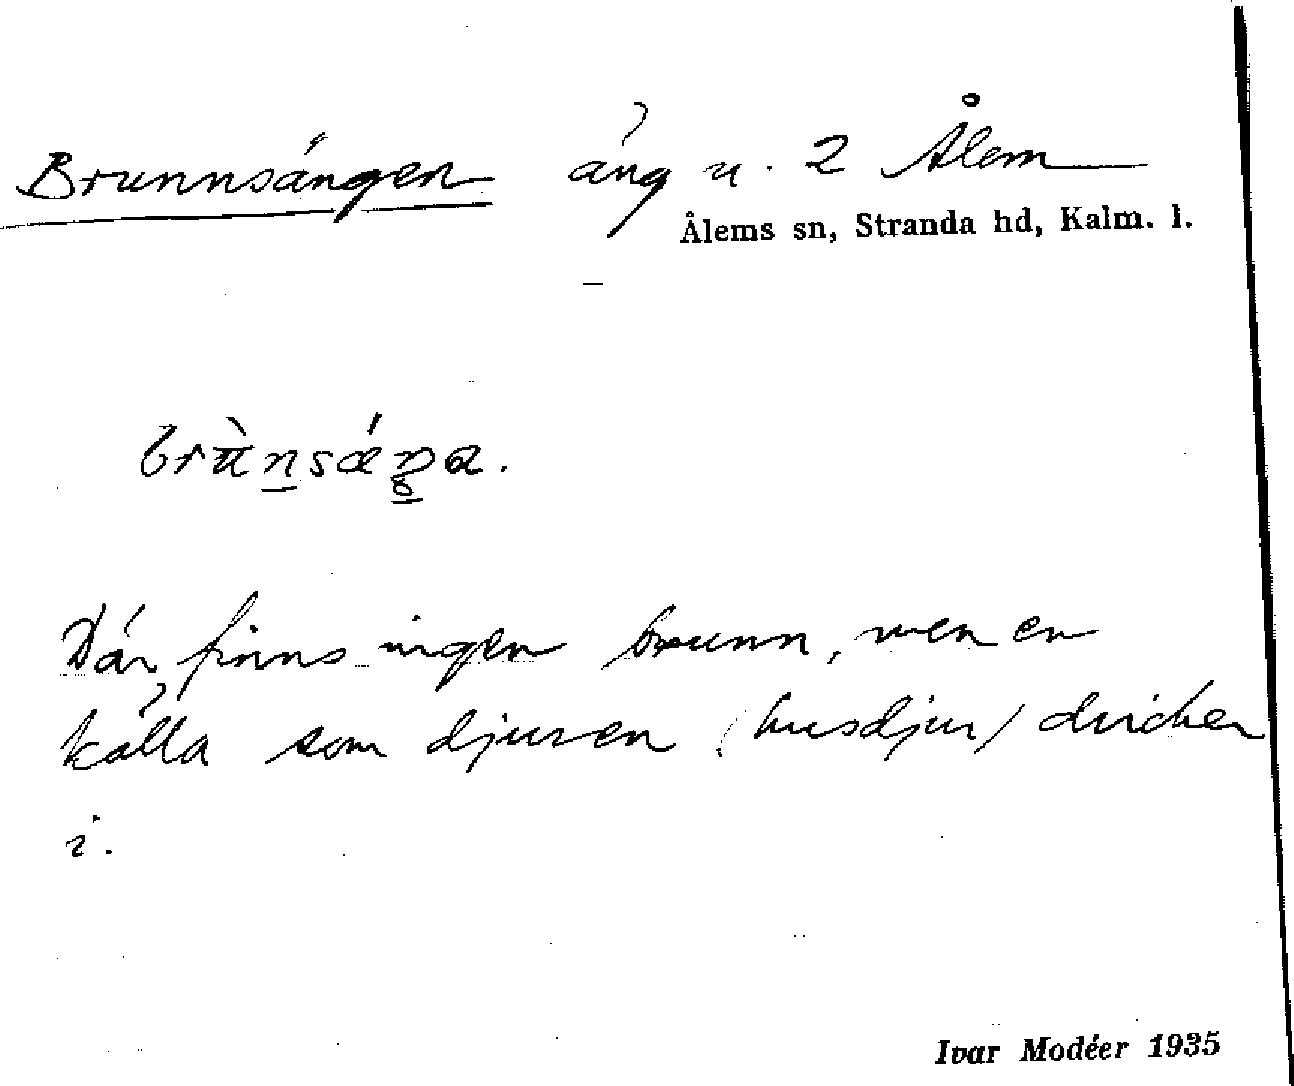 Brunnsängen äng u. 2 Ålem
Ålems sn, Stranda hd, Kalm. l.
brùnsǽŋa.
Där finns ingen brunn, men en
källa som djuren (husdjur) dricker
i.
Ivar Modéer 1935